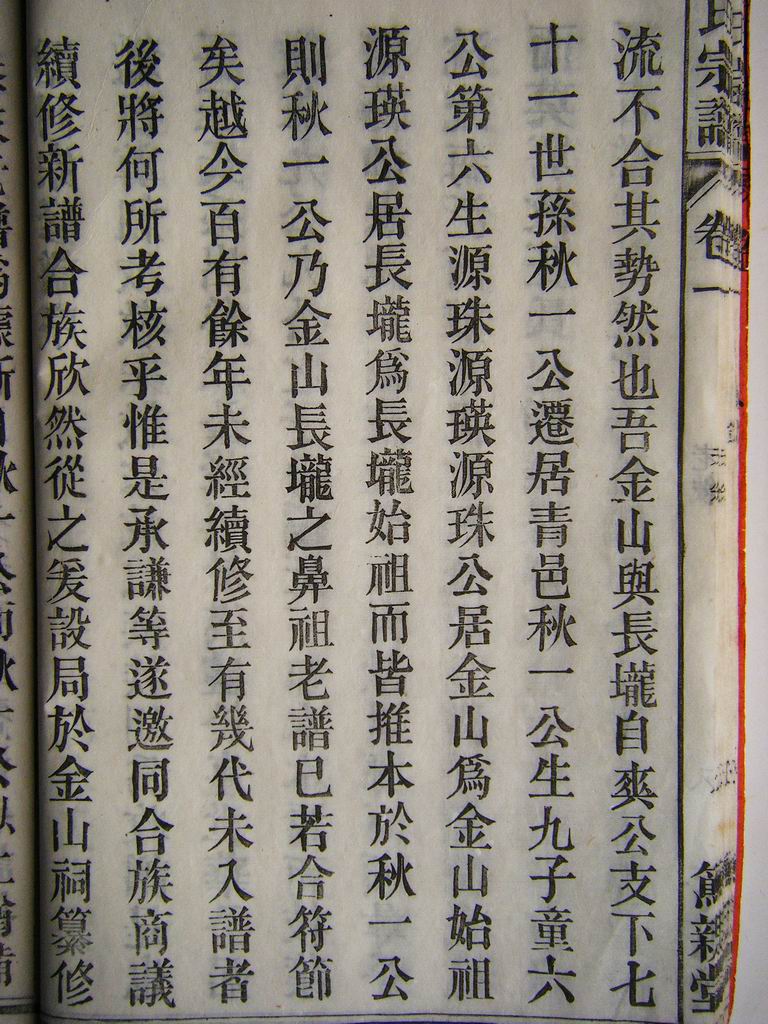 氏宗譜 卷一 篤親堂
流不合其勢然也吾金山與長壠自爽公支下七
十一世孫秋一公遷居青邑秋一公生九子童六
公第六生源珠源瑛源珠公居金山爲金山始祖
源瑛公居長壠爲長壠始祖而皆推本於秋一公
則秋一公乃金山長壠之鼻祖老譜已若合符節
矣越今百有餘年未經續修至有幾代未入譜者
後將何所考核乎惟是承謙等遂邀同合族商議
續修新譜合族欣然從之爰設局於金山祠纂修